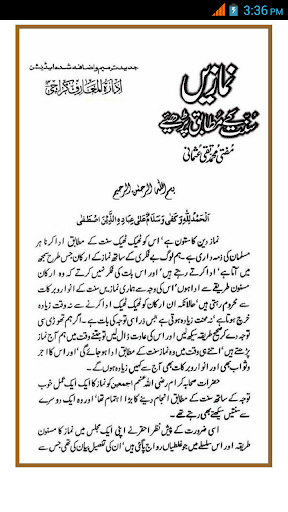 3:36 PM
جدید ترمیم و اضافہ شدہ ایڈیشن
ادارۃ المعارف کراچی
نمازیں
سنت کے مطابق پڑھیے
مفتی محمد تقی عثمانی
بسم اللہ الرحمٰن الرحیم
الحمد للہ وکفی وسلام علی عبادہ الذین اصطفی
نماز دین کا ستون ہے' اس کو ٹھیک ٹھیک سنت کے مطابق ادا کرنا ہر
مسلمان کی ذمہ داری ہے۔ ہم لوگ بے فکری کے ساتھ نماز کے ارکان جس طرح سمجھ
میں آتا ہے' ادا کرتے رہتے ہیں' اور اس بات کی فکر نہیں کرتے کہ وہ ارکان
مسنون طریقے سے ادا ہوں' اس کی وجہ سے ہماری نمازیں سنت کے انوار و برکات
سے محروم رہتی ہیں' حالانکہ ان ارکان کو ٹھیک ٹھیک ادا کرنے سے نہ وقت زیادہ
خرچ ہوتا ہے' نہ محنت زیادہ ہوتی ہے' بس ذرا سی توجہ کی بات ہے۔ اگر ہم تھوڑی سی
توجہ دے کر صحیح طریقہ سیکھ لیں' اور اس کی عادت ڈال لیں' تو جتنے وقت میں ہم آج نماز
پڑھتے ہیں' اتنے ہی وقت میں وہ نماز سنت کے مطابق ادا ہو جائے گی' اور اس کا اجر
و ثواب بھی اور انوار و برکات بھی آج سے کہیں زیادہ ہوں گے۔
حضرات صحابہ کرام رضی اللہ عنہم اجمعین کو نماز کا ایک ایک عمل خوب
توجہ کے ساتھ سنت کے مطابق انجام دینے کا بڑا اہتمام تھا' اور وہ ایک دوسرے
سے سنتیں سیکھتے بھی رہتے تھے۔
اسی ضرورت کے پیش نظر احقر نے اپنی ایک مجلس میں نماز کا مسنون
طریقہ اور اس سلسلے میں جو غلطیاں رواج پا گئی ہیں' ان کی تفصیل بیان کی تھی' جس سے